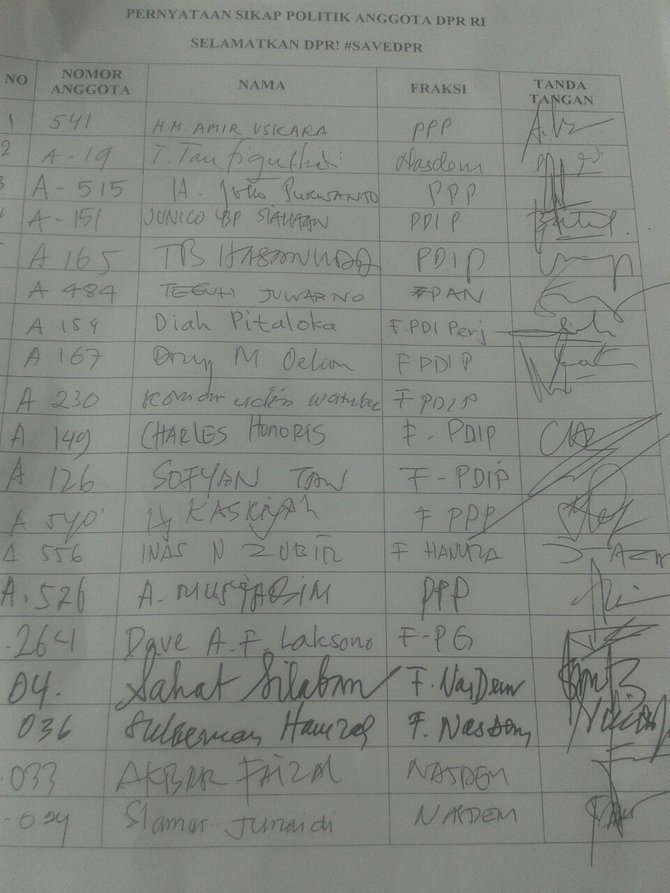 PERNYATAAN SIKAP POLITIK ANGGOTA DPR RI
SELAMATKAN DPR! #SAVEDPR
NO NOMOR ANGGOTA NAMA FRAKSI TANDA TANGAN
1 541 H.M. AMIR USKARA PPP
2 A-19 T. Taufiqulhadi Nasdem
3 A-515 H. Joko PURWANTO PPP
A-151 JUNICO BP SIAHAAN PDIP
A 165 TB HASANUDDIN PDIP
A 484 TEGUH JUWARNO PAN
A 154 Diah Pitaloka F.PDI Perj
A 167 M F PDIP
A 230 Komarudin Watubun F PDIP
A 149 CHARLES HONORIS F-PDIP
A 126 SOFYAN TAN F-PDIP
A 540 Hj KASRIYAH F PPP
A 556 INAS N ZUBIR F HANURA
A.526 A. MUSTAQIM PPP
264 Dave A.F. Laksono F-PG
04. Sahat Silaban F. NasDem
036 Sulaeman Hamzah F. Nasdem
033 AKBAR FAIZAL NASDEM
Slamet Junaidi NASDEM